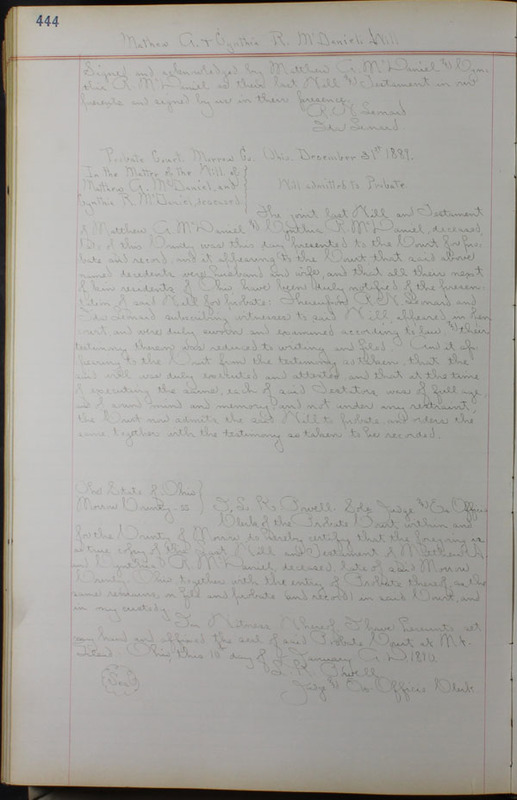 444
Mathew A. & Cynthia R. McDaniel Will
Signed and acknowledged by Matthew A. McDaniel & Cyn-
thia R. McDaniel as their last Will & Testament in our
presence and signed by us in their presence.
Probate Court, Morrow Co. Ohio. December 31st 1889.
In the Matter of the Will of
Mathew A. McDaniel, and
Cynthia R. McDaniel, deceased
Will admitted to Probate.
The joint last Will and Testament
of Matthew A. McDaniel & Cynthia R. McDaniel, deceased,
late of this County was this day presented to the Court for pro-
bate and record, and it appearing to the Court that said above
named decedents were husband and wife, and that all their next
of kin residents of Ohio have been duly notified of the presen-
tation of said Will for probate: Thereupon and
subscribing witnesses to said Will, appeared in open
court and were duly sworn and examined according to law, & their
testimony thereon was reduced to writing and filed. And it ap-
pearing to the Court from the testimony so taken, that the
said will was duly executed and attested, and that at the time
of executing the same, each of said Testators, was of full age,
and of sound mind and memory, and not under any restraint,
the Court now admits the said Will to probate, and orders the
same together with the testimony so taken to be recorded.
The State of Ohio
Morrow County. ss
I, L. K. Powell, Sole Judge & Ex-Officio
Clerk of the Probate Court, within and
for the County of Morrow do hereby certify that the foregoing is
a true copy of the joint Will and Testament of Matthew A.
and Cynthia R. McDaniel, deceased, late of said Morrow
County, Ohio together with the entry of Probate thereof, as the
same remains, on file and probate and record in said Court, and
in my custody.
In Witness Whereof, I have hereunto set
my hand and affixed the seal of said Probate Court at Mt.
Gilead, Ohio this 10" day of January A.D. 1890.
L. K. Powell
Judge & Ex-Officio Clerk